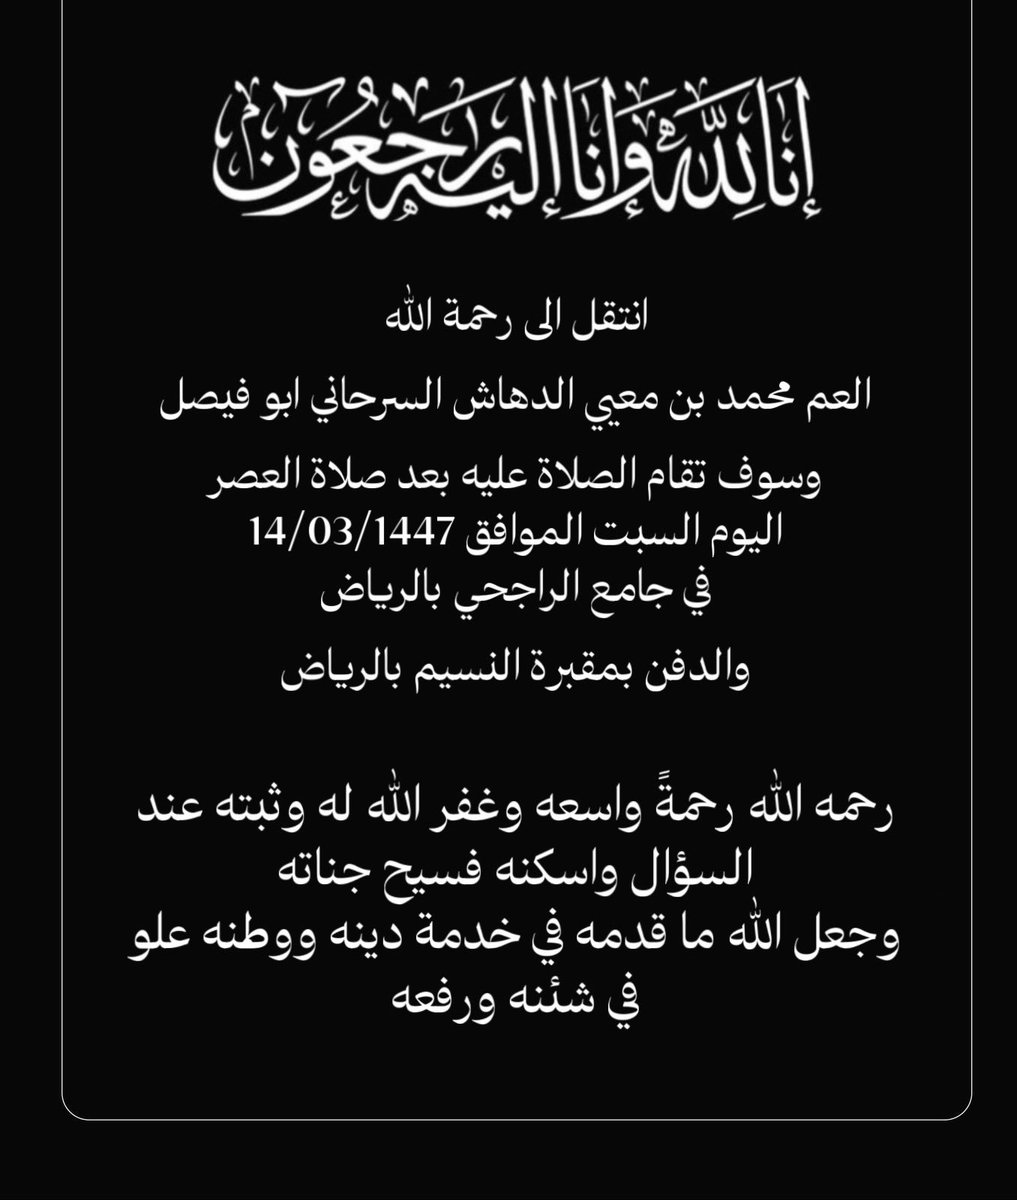 إنا لله وإنا إليه راجعون
انتقل الى رحمة الله
العم محمد بن معيي الدهاش السرحاني ابو فيصل
وسوف تقام الصلاة عليه بعد صلاة العصر
اليوم السبت الموافق 14/03/1447
في جامع الراجحي بالرياض
والدفن بمقبرة النسيم بالرياض
رحمه الله رحمةً واسعه وغفر الله له وثبته عند
السؤال واسكنه فسيح جناته
وجعل الله ما قدمه في خدمة دينه ووطنه علو
في شئنه ورفعه